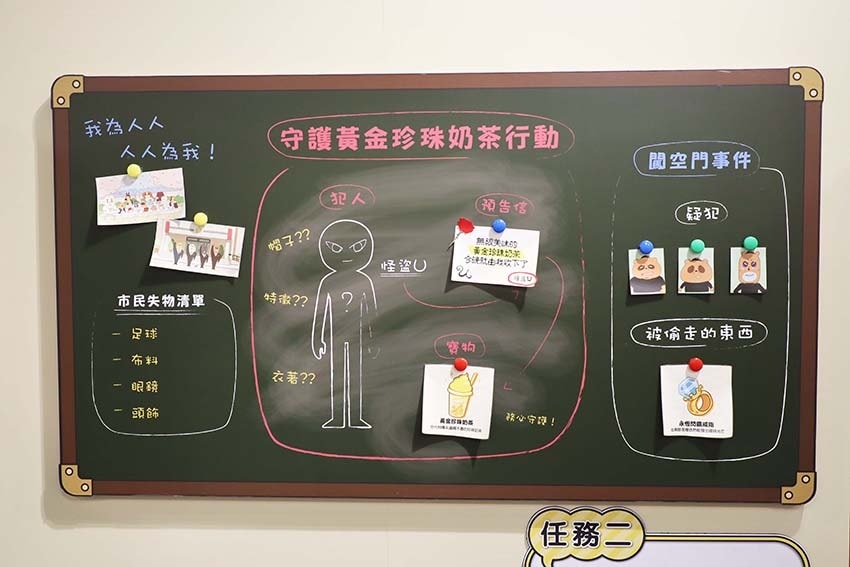 我為人人
人人為我！
市民失物清單
– 足球
– 布料
– 眼鏡
– 頭飾
守護黃金珍珠奶茶行動
犯人
帽子??
特徵??
衣著??
?
怪盜U
預告信
無敵美味的
黃金珍珠奶茶
今晚就由我收下了
怪盜U
寶物
黃金珍珠奶茶
我必守護！
闖空門事件
疑犯
被偷走的東西
永恆閃鑽戒指
任務二